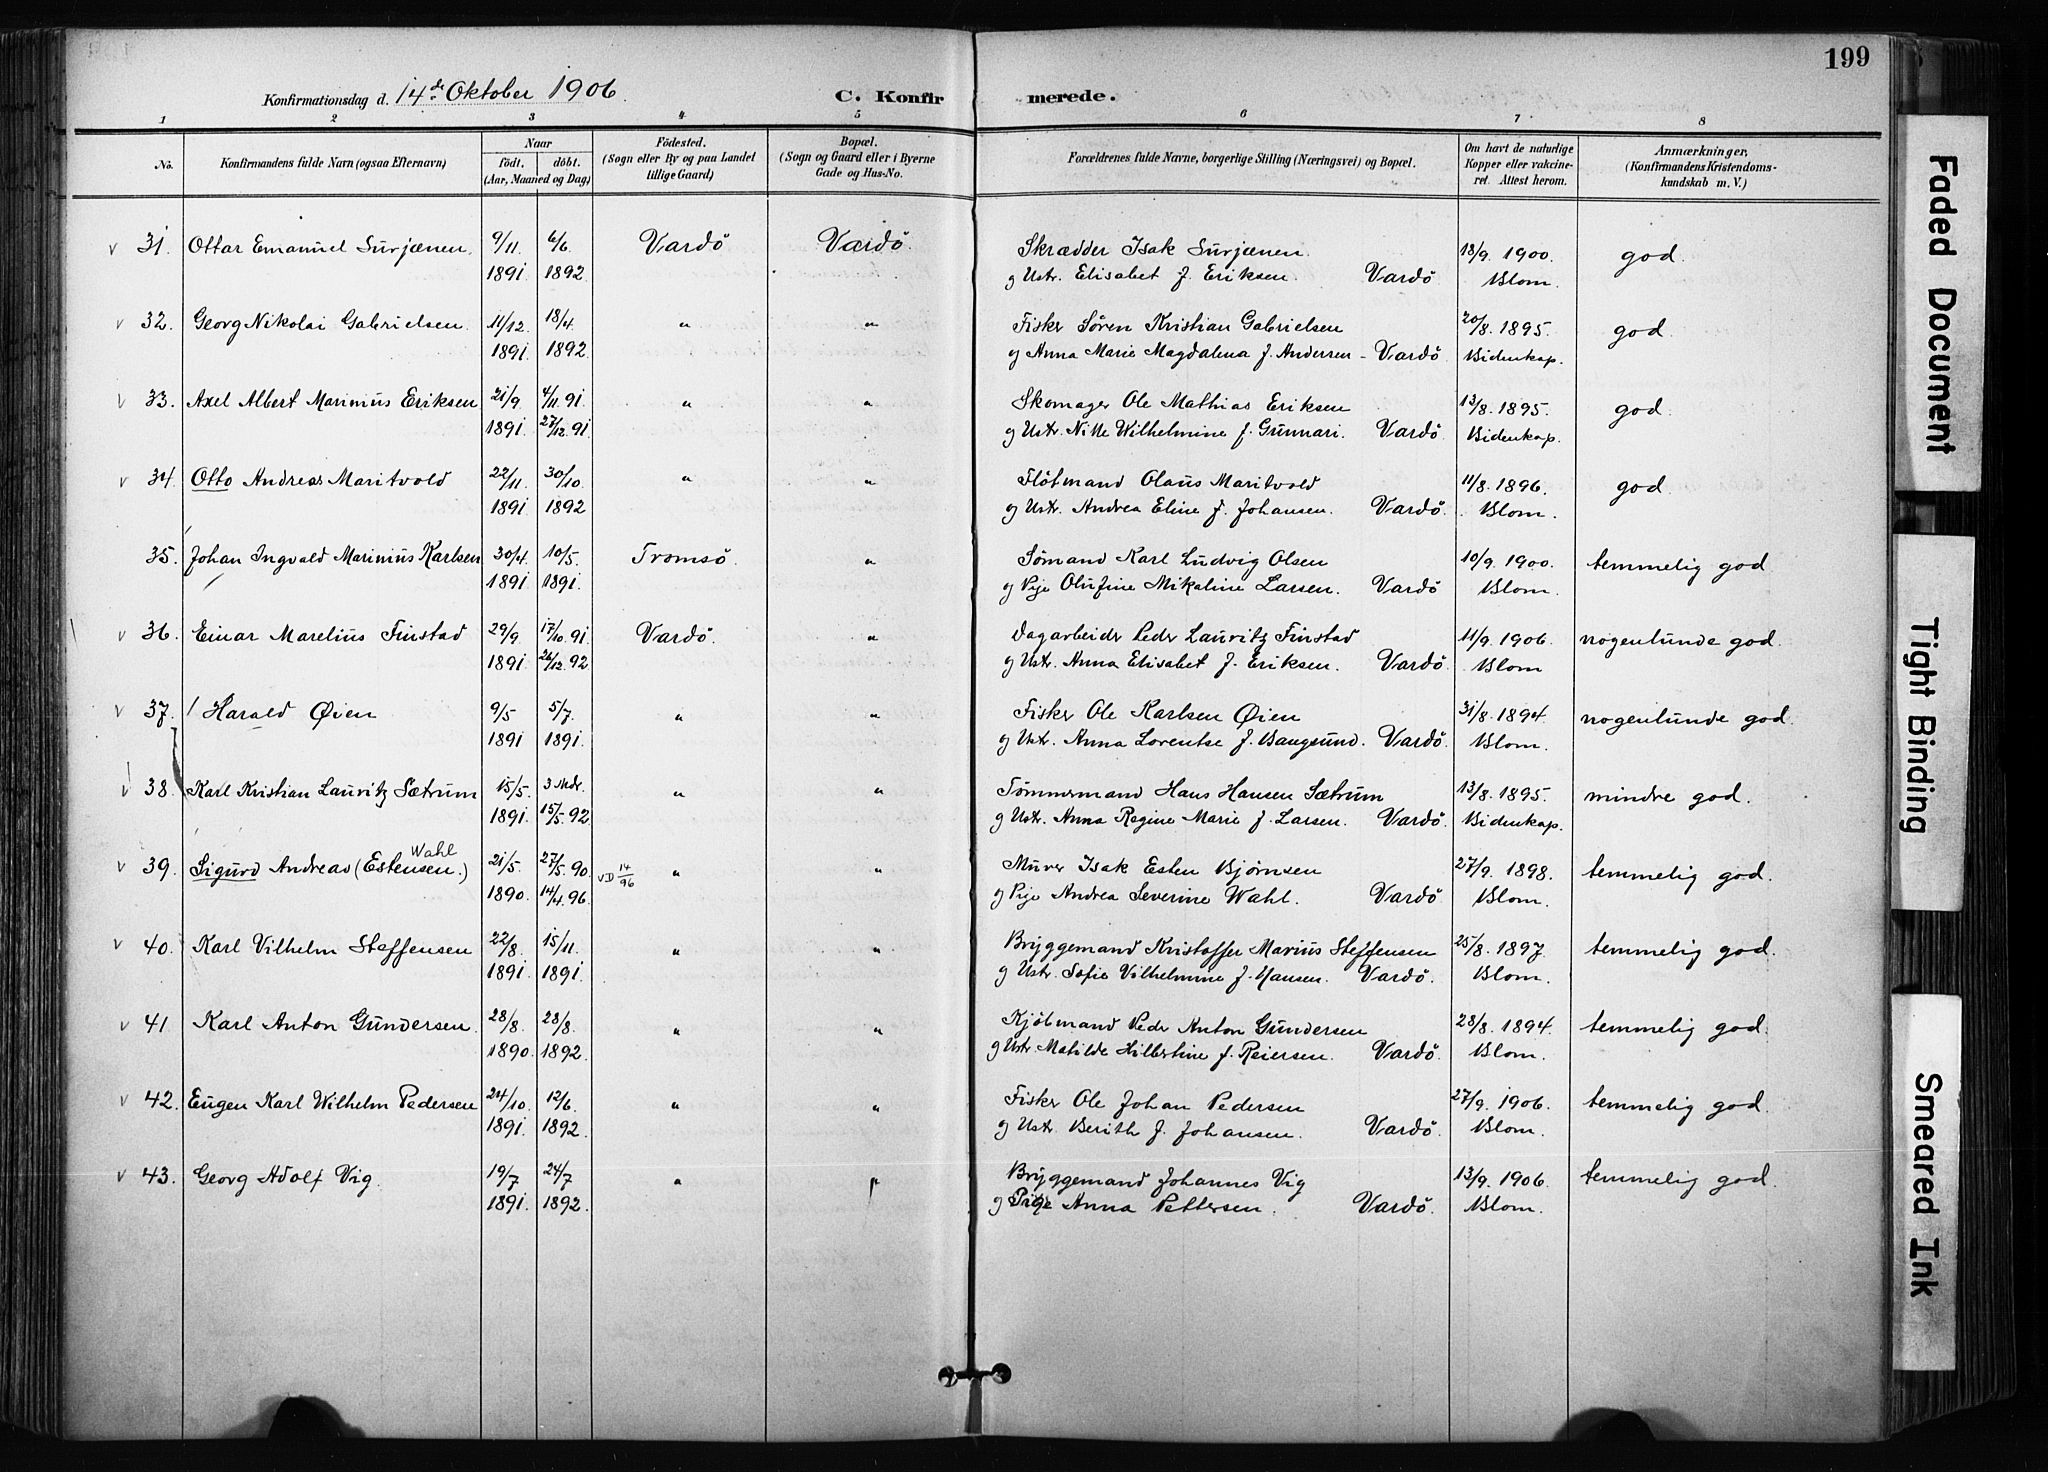 199
Konfirmationsdag d. 14de Oktober 1906. C. Konfirmerede.
1 2 3 4 5 6 7 8
No. Konfirmandens fulde Navn (ogsaa Efternavn) Naar födt. döbt. (Aar, Maaned og Dag) Födested. (Sogn eller By og paa Landet tillige Gaard) Bopæl. (Sogn og Gaard eller i Byerne Gade og Hus-No. Forældrenes fulde Navne, borgerlige Stilling (Næringsvei) og Bopæl. Om havt de naturlige Kopper eller vakcineret. Attest herom. Anmærkninger, (Konfirmandens Kristendomskundskab m. V.)
v 31. Ottar Emanuel Surjænen. 9/11. 6/6. Vardö Vardö. Skrædder Isak Surjænen. 18/9. 1900. god.
1891. 1892. og Ustr. Elisabet f. Eriksen. Vardö Blom.
v 32. Georg Nikolai Gabrielsen. 11/12. 18/4. " " Fisker Sören Kristian Gabrielsen 20/8. 1895. god.
1891. 1892. og Anna Marie Magdalena f. Andersen - Vardö. Bidenkap.
v 33. Axel Albert Marinius Eriksen 21/9. 4/11. 91. " " Skomager Ole Mathias Eriksen 13/8. 1895. god.
1891. 27/12. 91. og Ustr. Nille Wilhelmine f. Gunnari. Vardö. Bidenkap.
v 34. Otto Andreas Maritvold 22/11. 30/10. " " Flötmand Olaus Maritvold 11/8. 1896. god.
1891. 1892 og Ustr. Andrea Eline f. Johansen. Vardö. Blom.
35. Johan Ingvald Marinius Karlsen 30/4. 10/5. Tromsö. " Sömand Karl Ludvig Olsen 10/9. 1900. temmelig god.
1891. 1891. og Pige Olufine Mikaline Larsen. Vardö Blom.
v 36. Einar Marelius Finstad 29/9. 17/10. 91. Vardö. " Dagarbeider Peder Lauritz Finstad 11/9. 1906. nogenlunde god.
1891. 26/12. 92. og Ustr. Anna Elisabet f. Eriksen. Vardö. Blom
v 37. / Harald Øien 9/5 5/7. " " Fisker Ole Karlsen Øien 31/8. 1894. nogenlunde god.
1891 1891. og Ustr. Anna Lorentse f. Baugsund. Vardö. Blom.
v 38. Karl Kristian Lauritz Sætrum 15/5. 3 Mdr. " " Tömmermand Hans Hansen Sætrum 13/8. 1895. mindre god.
1891. 15/5. 92. og Ustr. Anna Regine Marie f. Larsen. Vardö. Bidenkap.
Wahl
v 39. Sigurd Andreas (Estensen.) 21/5. 27/5. 90. VD 14/96 " " Murer Isak Esten Bjørnsen 27/9. 1898. temmelig god.
1890. 14/4. 96. og Pige Andrea Severine Wahl. Vardö. Blom.
v 40. Karl Vilhelm Steffensen 22/8. 15/11. " " Bryggemand Kristoffer Marius Steffensen 25/8. 1897. temmelig god.
1891. 1891. og Ustr. Sofie Vilhelmine f. Hansen. Vardö. Blom.
v 41 Karl Anton Gundersen. 28/8. 28/8. " " Kjöbmand Peder Anton Gundersen 28/8. 1894. temmelig god.
1890. 1892. og Ustr Matilde Hilbertine f. Reiersen. Vardö. Blom.
v 42. Eugen Karl Wilhelm Pedersen 24/10. 12/6. " " Fisker Ole Johan Pedersen 27/9. 1906. temmelig god.
1891. 1892. og Ustr. Berith f. Johansen. Vardö. Blom.
v 43. Georg Adolf Vig. 19/7 24/7 " " Bryggemand Johannes Vig 13/9. 1906. temmelig god.
1891. 1892. og Pige Anna Pettersen. Vardö. Blom.
Faded Document
Tight Binding
Smeared Ink